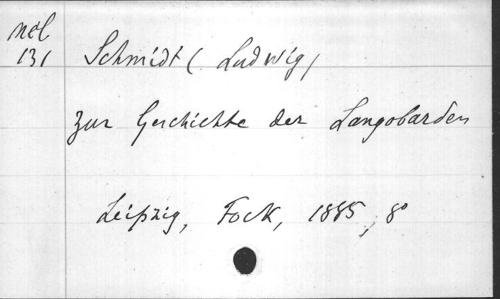 Mél
131
Schmidt (Ludwig)
zur Geschichte der Langobarden
Leipzig, Fock, 1885, 8°